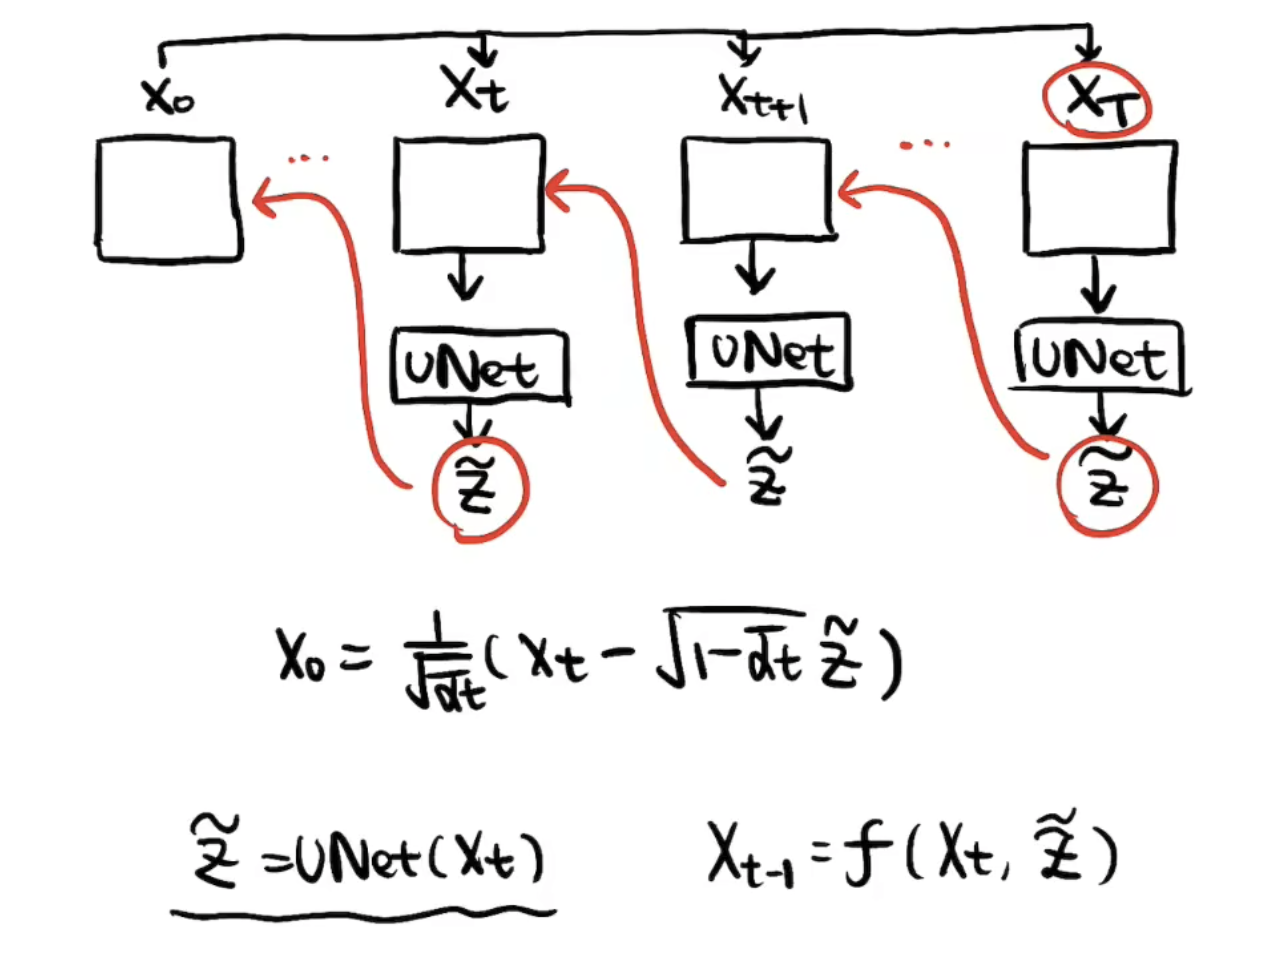 X₀ Xt Xt+1 XT
... ...
UNet UNet UNet
z̃ z̃ z̃
X₀ = 1/√ᾱt (Xt − √(1−ᾱt) z̃)
z̃ = UNet(Xt) Xt-1 = f(Xt, z̃)